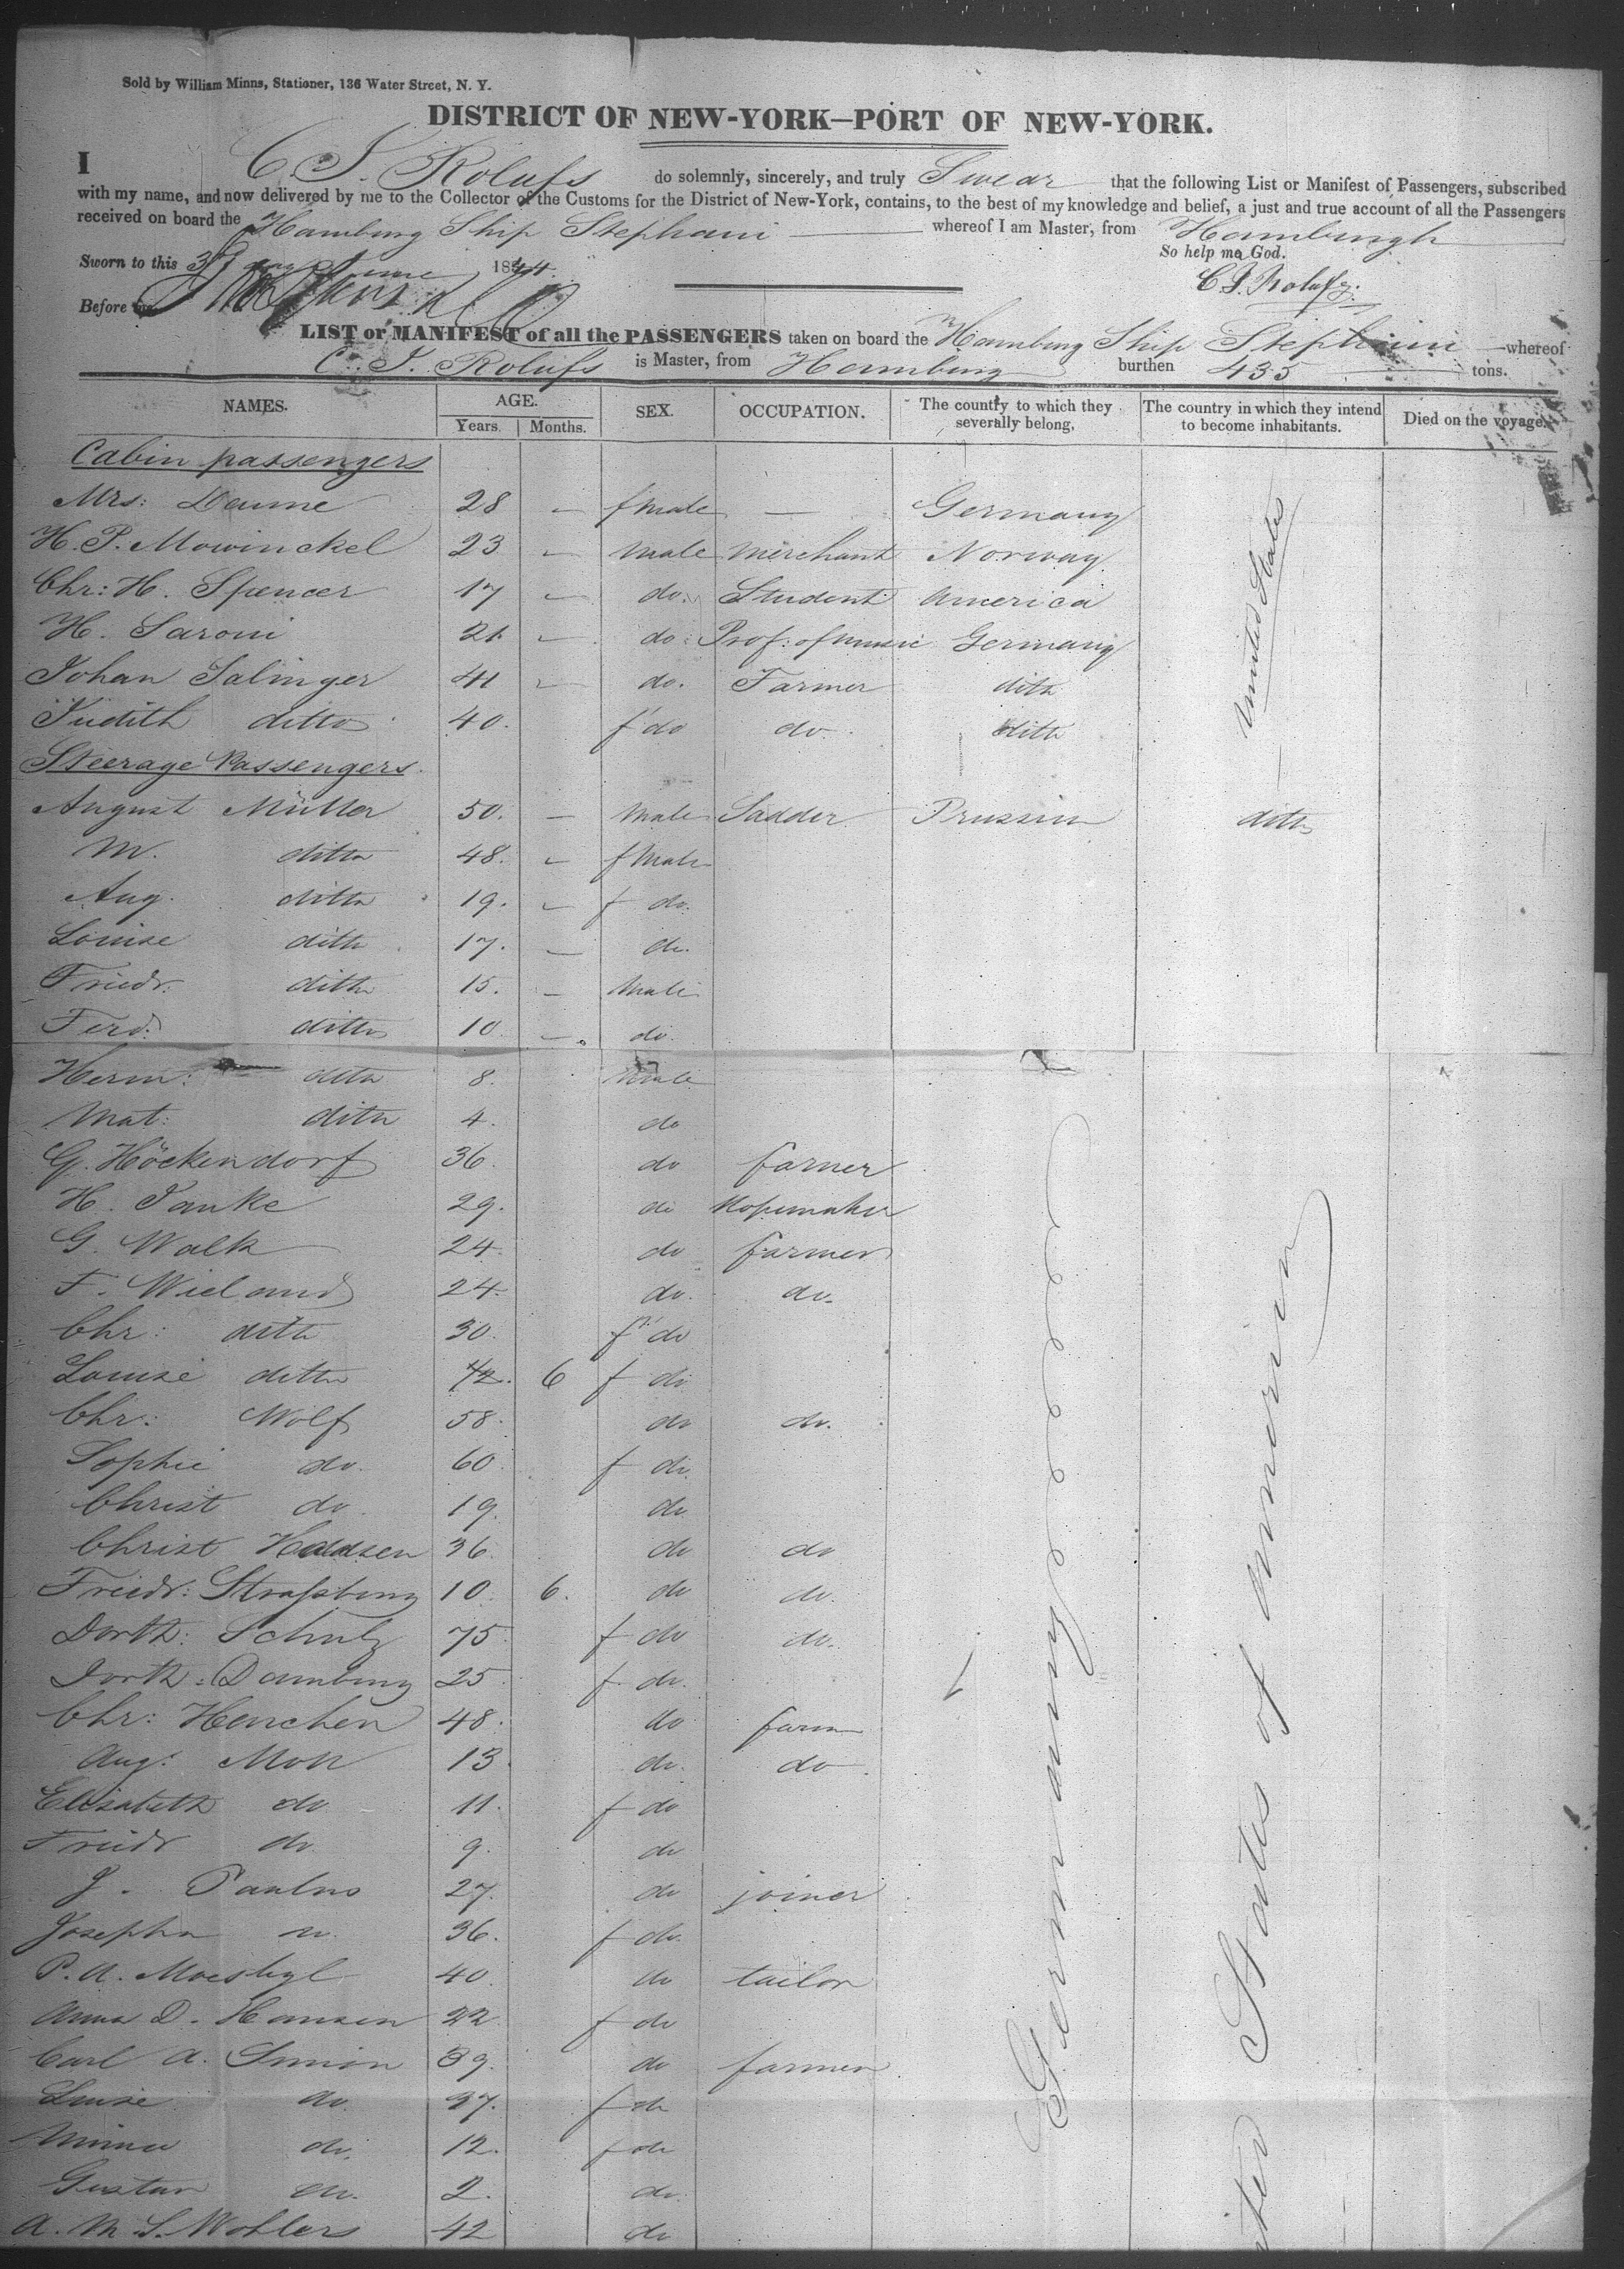 Sold by William Minns, Stationer, 136 Water Street, N. Y.
DISTRICT OF NEW-YORK—PORT OF NEW-YORK.
I C. J. Rolufs do solemnly, sincerely, and truly Swear that the following List or Manifest of Passengers, subscribed
with my name, and now delivered by me to the Collector of the Customs for the District of New-York, contains, to the best of my knowledge and belief, a just and true account of all the Passengers
received on board the Hamburg Ship Stephani whereof I am Master, from Hamburgh
So help me God.
Sworn to this June 1844.
C J. Rolufs.
Before me
LIST or MANIFEST of all the PASSENGERS taken on board the Hamburg Ship Stephani whereof
C. J. Rolufs is Master, from Hamburg burthen 435 tons.
NAMES. AGE. SEX. OCCUPATION. The country to which they severally belong. The country in which they intend to become inhabitants. Died on the voyage.
Years. Months.
Cabin passengers
Mrs: Daume 28 – fmale — Germany
H. P. Mowinckel 23 – male merchant Norway
Chr: H. Spencer 17 – do. Student America
H. Saroni 21 – do. Prof: of music Germany
Johan Salinger 41 – do. Farmer ditto
Judith ditto 40. f do do. ditto
United States
Steerage Passengers.
August Müller 50. – male Sadder Prussia ditto
M. ditto 48. – fmale
Aug. ditto 19. – f do.
Louise ditto 17. – do.
Friedr: ditto 15. – male
Ferd: ditto 10 – do.
Herm: ditto 8. male
Mat: ditto 4. do
G. Höckendorf 36. do farmer
H. Janke 29. do Ropemaker
G. Walk 24. do farmer
F. Wieland 24. do. do.
Chr: ditto 30. f do
Louise ditto 6 f do
Chr: Wolf 58. do do.
Sophie do. 60 f do.
Christ do. 19. do.
Christ 36. do do
Friedr: Straßburg 10. 6. do do.
Dorth: Schulz 75. f do do.
Dorth: Damburg 25 f do.
Chr: Henchen 48. do farm
Aug: Moll 13. do. do.
Elisabeth do 11. f do
Friedr do. 9. do
J. Paulus 27. do joiner
Josepha do. 36. f do.
P. A. 40. do tailor
Anna D. Hansen 22. f do
Carl A. Simon 39. do farmer
Louise do. 37. f do
Minna do. 12. f do
Gustav do. 2. do.
A. M. S. Wohlers 42 do
Germany
States of America